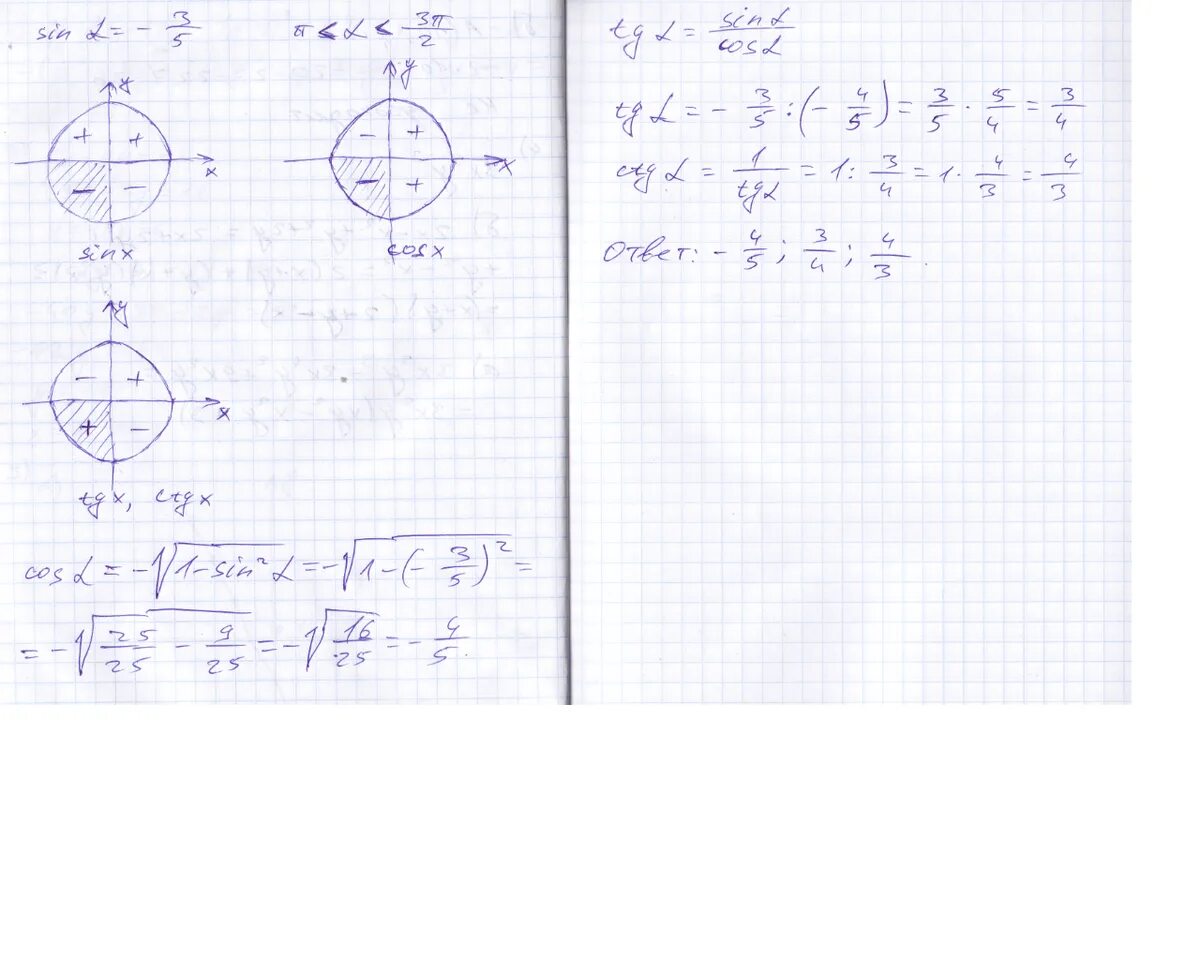 sin α = - 3/5   π < α < 3π/2
y
y
+ +
- +
x
x
- -
- +
sin x
cos x
y
- +
x
+ -
tg x, ctg x
cos α = -√(1-sin²α) = -√(1-(-3/5)²) =
= -√(25/25 - 9/25) = -√(16/25) = - 4/5.
tg α = sin α/cos α
tg α = - 3/5 : (- 4/5) = 3/5 · 5/4 = 3/4
ctg α = 1/tg α = 1 : 3/4 = 1 · 4/3 = 4/3
Ответ: - 4/5; 3/4; 4/3.